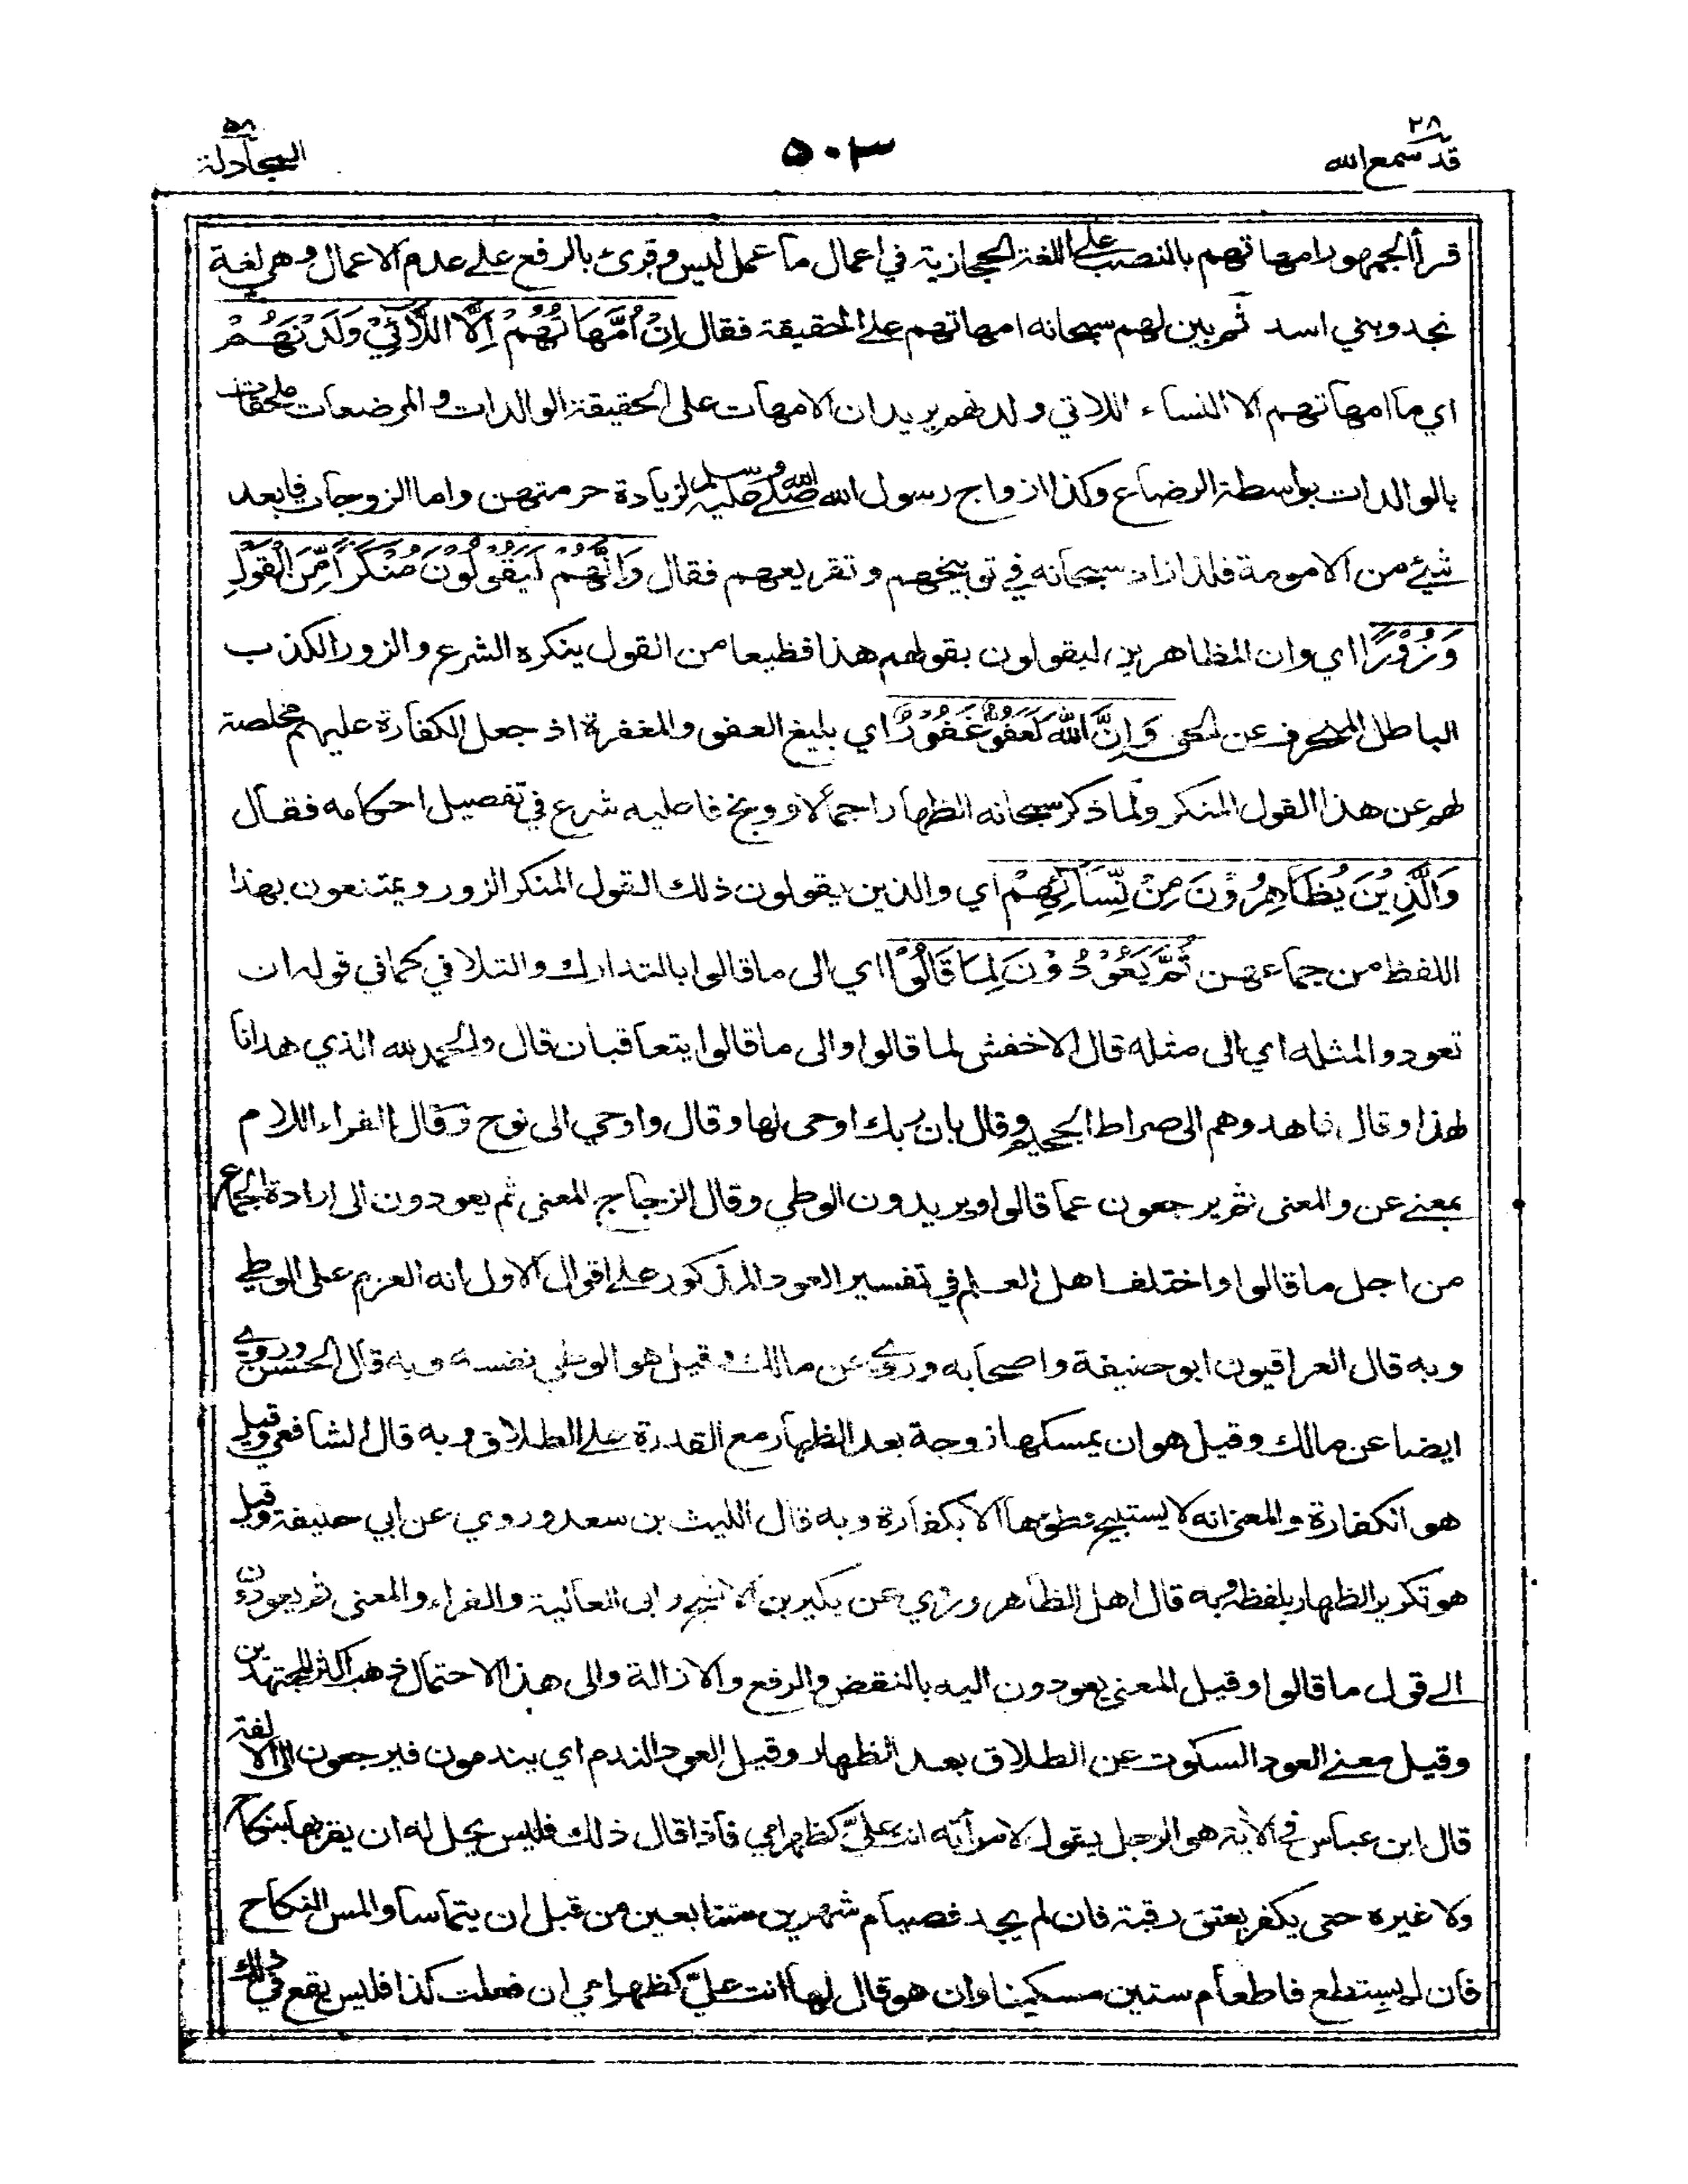 ٢٨
قد سمع الله
٥٠٣
٥٨
المجادلة
قرأ الجمهور امهاتهم بالنصب على اللغة الحجازية في اعمال ما عمل ليس وقرئ بالرفع على عدم الاعمال وهي لغة
نجد وبني اسد ثم بين لهم سبحانه امهاتهم على الحقيقة فقال اِنْ اُمَّهَاتُهُمْ اِلَّا اللَّائِيْ وَلَدْنَهُمْ
اي ما امهاتهم الا النساء اللاتي ولدنهم يريد ان الامهات على الحقيقة الوالدات والمرضعات ملحقات
بالوالدات بواسطة الرضاع وكذا ازواج رسول الله صلى الله عليه وسلم لزيادة حرمتهن واما الزوجات فابعد
شيء من الامومة فلذا زاد سبحانه في توبيخهم وتقريعهم فقال وَاِنَّهُمْ لَيَقُوْلُوْنَ مُنْكَرًا مِّنَ الْقَوْلِ
وَزُوْرًا اي وان المظاهرين ليقولون بقولهم هذا فظيعا من القول ينكره الشرع والزور الكذب
الباطل المنحرف عن الحق وَاِنَّ اللّٰهَ لَعَفُوٌّ غَفُوْرٌ اي بليغ العفو والمغفرة اذ جعل الكفارة عليهم مخلصة
لهم عن هذا القول المنكر ولما ذكر سبحانه الظهار اجمالا ووبخ فاعليه شرع في تفصيل احكامه فقال
وَالَّذِيْنَ يُظَاهِرُوْنَ مِنْ نِّسَائِهِمْ اي والذين يقولون ذلك القول المنكر الزور ويمتنعون بهذا
اللفظ من جماعهن ثُمَّ يَعُوْدُوْنَ لِمَا قَالُوْا اي الى ما قالوا بالتدارك والتلافي كما في قوله ان
تعودوا لمثله اي الى مثله قال الاخفش لما قالوا والى ما قالوا يتعاقبان قال والحمد لله الذي هدانا
لهذا وقال فاهدوهم الى صراط الجحيم وقال بان ربك اوحى لها وقال واوحي الى نوح وقال الفراء اللام
بمعنے عن والمعنى ثم يرجعون عما قالوا ويريدون الوطي وقال الزجاج المعنى ثم يعودون الى ارادة الجماع
من اجل ما قالوا واختلف اهل العلم في تفسير العود المذكور على اقوال الاول انه العزم على الوطي
وبه قال العراقيون ابو حنيفة واصحابه وروي عن مالك وقيل هو الوطي نفسه وبه قال الحسن وروي
ايضا عن مالك وقيل هو ان يمسكها زوجة بعد الظهار مع القدرة على الطلاق وبه قال الشافعي وقيل
هو الكفارة والمعنى انه لا يستبيح وطؤها الا بكفارة وبه قال الليث بن سعد وروي عن ابي حنيفة وقيل
هو تكرير الظهار بلفظه وبه قال اهل الظاهر وروي عن بكير بن الاشج وابي العالية والفراء والمعنى ثم يعودون
الى قول ما قالوا وقيل المعنى يعودون اليه بالنقض والرفع والازالة والى هذا الاحتمال ذهب اكثر المجتهدين
وقيل معنے العود السكوت عن الطلاق بعد الظهار وقيل العود الندم اي يندمون فيرجعون الى الالفة
قال ابن عباس في الآية هو الرجل يقول لامرأته انت عليّ كظهر امي فاذا قال ذلك فليس يحل له ان يقربها بنكاح
ولا غيره حتى يكفر بعتق رقبة فان لم يجد فصيام شهرين متتابعين من قبل ان يتماسا والمس النكاح
فان لم يستطع فاطعام ستين مسكينا وان هو قال لها انت عليّ كظهر امي ان فعلت كذا فليس يقع في ذلك